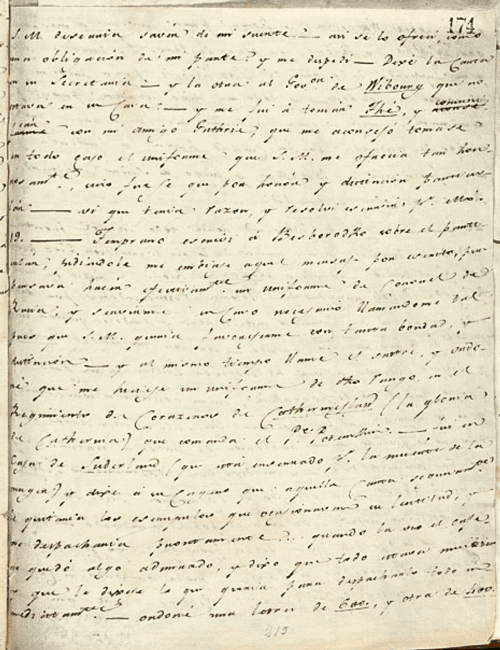 174
S. M. desearia savér de mi suerte — asi se lo ofrecí, como
una obligación de mi parte? y me despedí — Dexé la Carta
en su Secretaria — y la otra al Gov.on de Wibourg que no
estava en su Casa: — y me fuí á tomár Thé, y
con mi amigo Guthrie? que me aconsejó tomase
en todo caso el uniforme que S. M. me ofrecia tan hon-
rosam.te? pues que por honór y distinción
— vi que tenia razon, y resolví
19. — Temprano escriví á Besborodko sobre el parti-
culár, pidiendole me embiase aquel mensage por escrito,
pensava hacer un uniforme de Coronel de
Rusia; y servirme en caso necesario llamandome tal
pues que S. M. queria con tanta bondad, y
distinción — y al mismo tiempo llamé el sastre, y orde-
né que me hiciese un uniforme de dho rango, en el
Regimiento de Corazeros de Catherineslaw (la gloria
de Catherina) que comanda el P.pe Potemkin. — fuí en
Casa de Suderland (que está encerrado p.r la muerte de la
) y dixe á su Cagero que aquella Carta
quitaria los escrupulos que ocasionavan su lentitud, y
me despacharia prontamente... quando la vió el caxe-
ro quedó algo admirado, y dixo que todo estava mui bien
y que le dixese lo que queria para despacharlo todo in-
mediatam.te — ordené una letra de 600, y otra de 400.
215